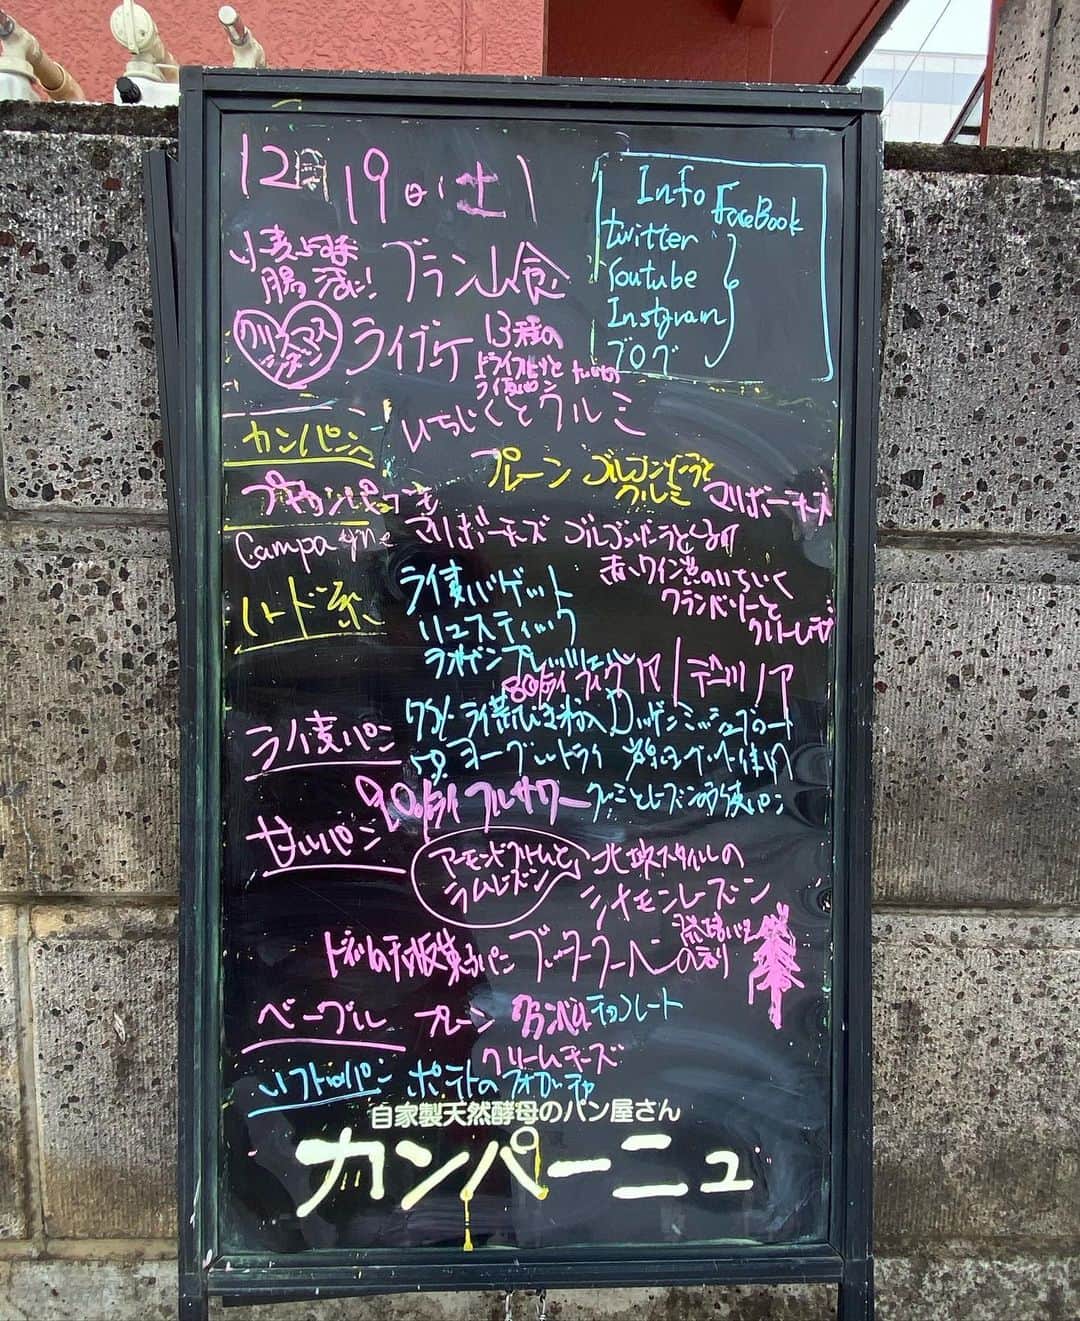 12月19日(土)
Info
FaceBook
twitter
Youtube
Instgram
ブログ
小麦ふすま
腸活に!
ブラン山食
クリスマス
シーズン
ライブケ
13種の
ドライフルーツと
ライ麦パン
いちじくとクルミ
カンパーニュ
プレーン
ゴルゴンゾーラと
クルミ
マリボーチーズ
プチカンパーニュ
Campagne
マリボーチーズ
ゴルゴンゾーラとくるみ
ハード系
ライ麦バゲット
赤ワイン煮のいちじく
クランベリーと
クリームチーズ
リュスティック
ラオゲンプレッツェル
80%ライ
ライ麦パン
ライ麦粗びき粉入り
ロッゲンミッシュブロート
ヨーグルトライ
90%ライ フルサワー
クルミとレーズンのライ麦パン
甘いパン
アーモンドクリームと
ラムレーズン
北欧スタイルの
シナモンレーズン
ドイツの天板焼きパン
ブッタークーヘン
ベーグル
プレーン
クランベリー
チョコレート
クリームチーズ
ソフトなパン
ポテトのフォカッチャ
自家製天然酵母のパン屋さん
カンパーニュ